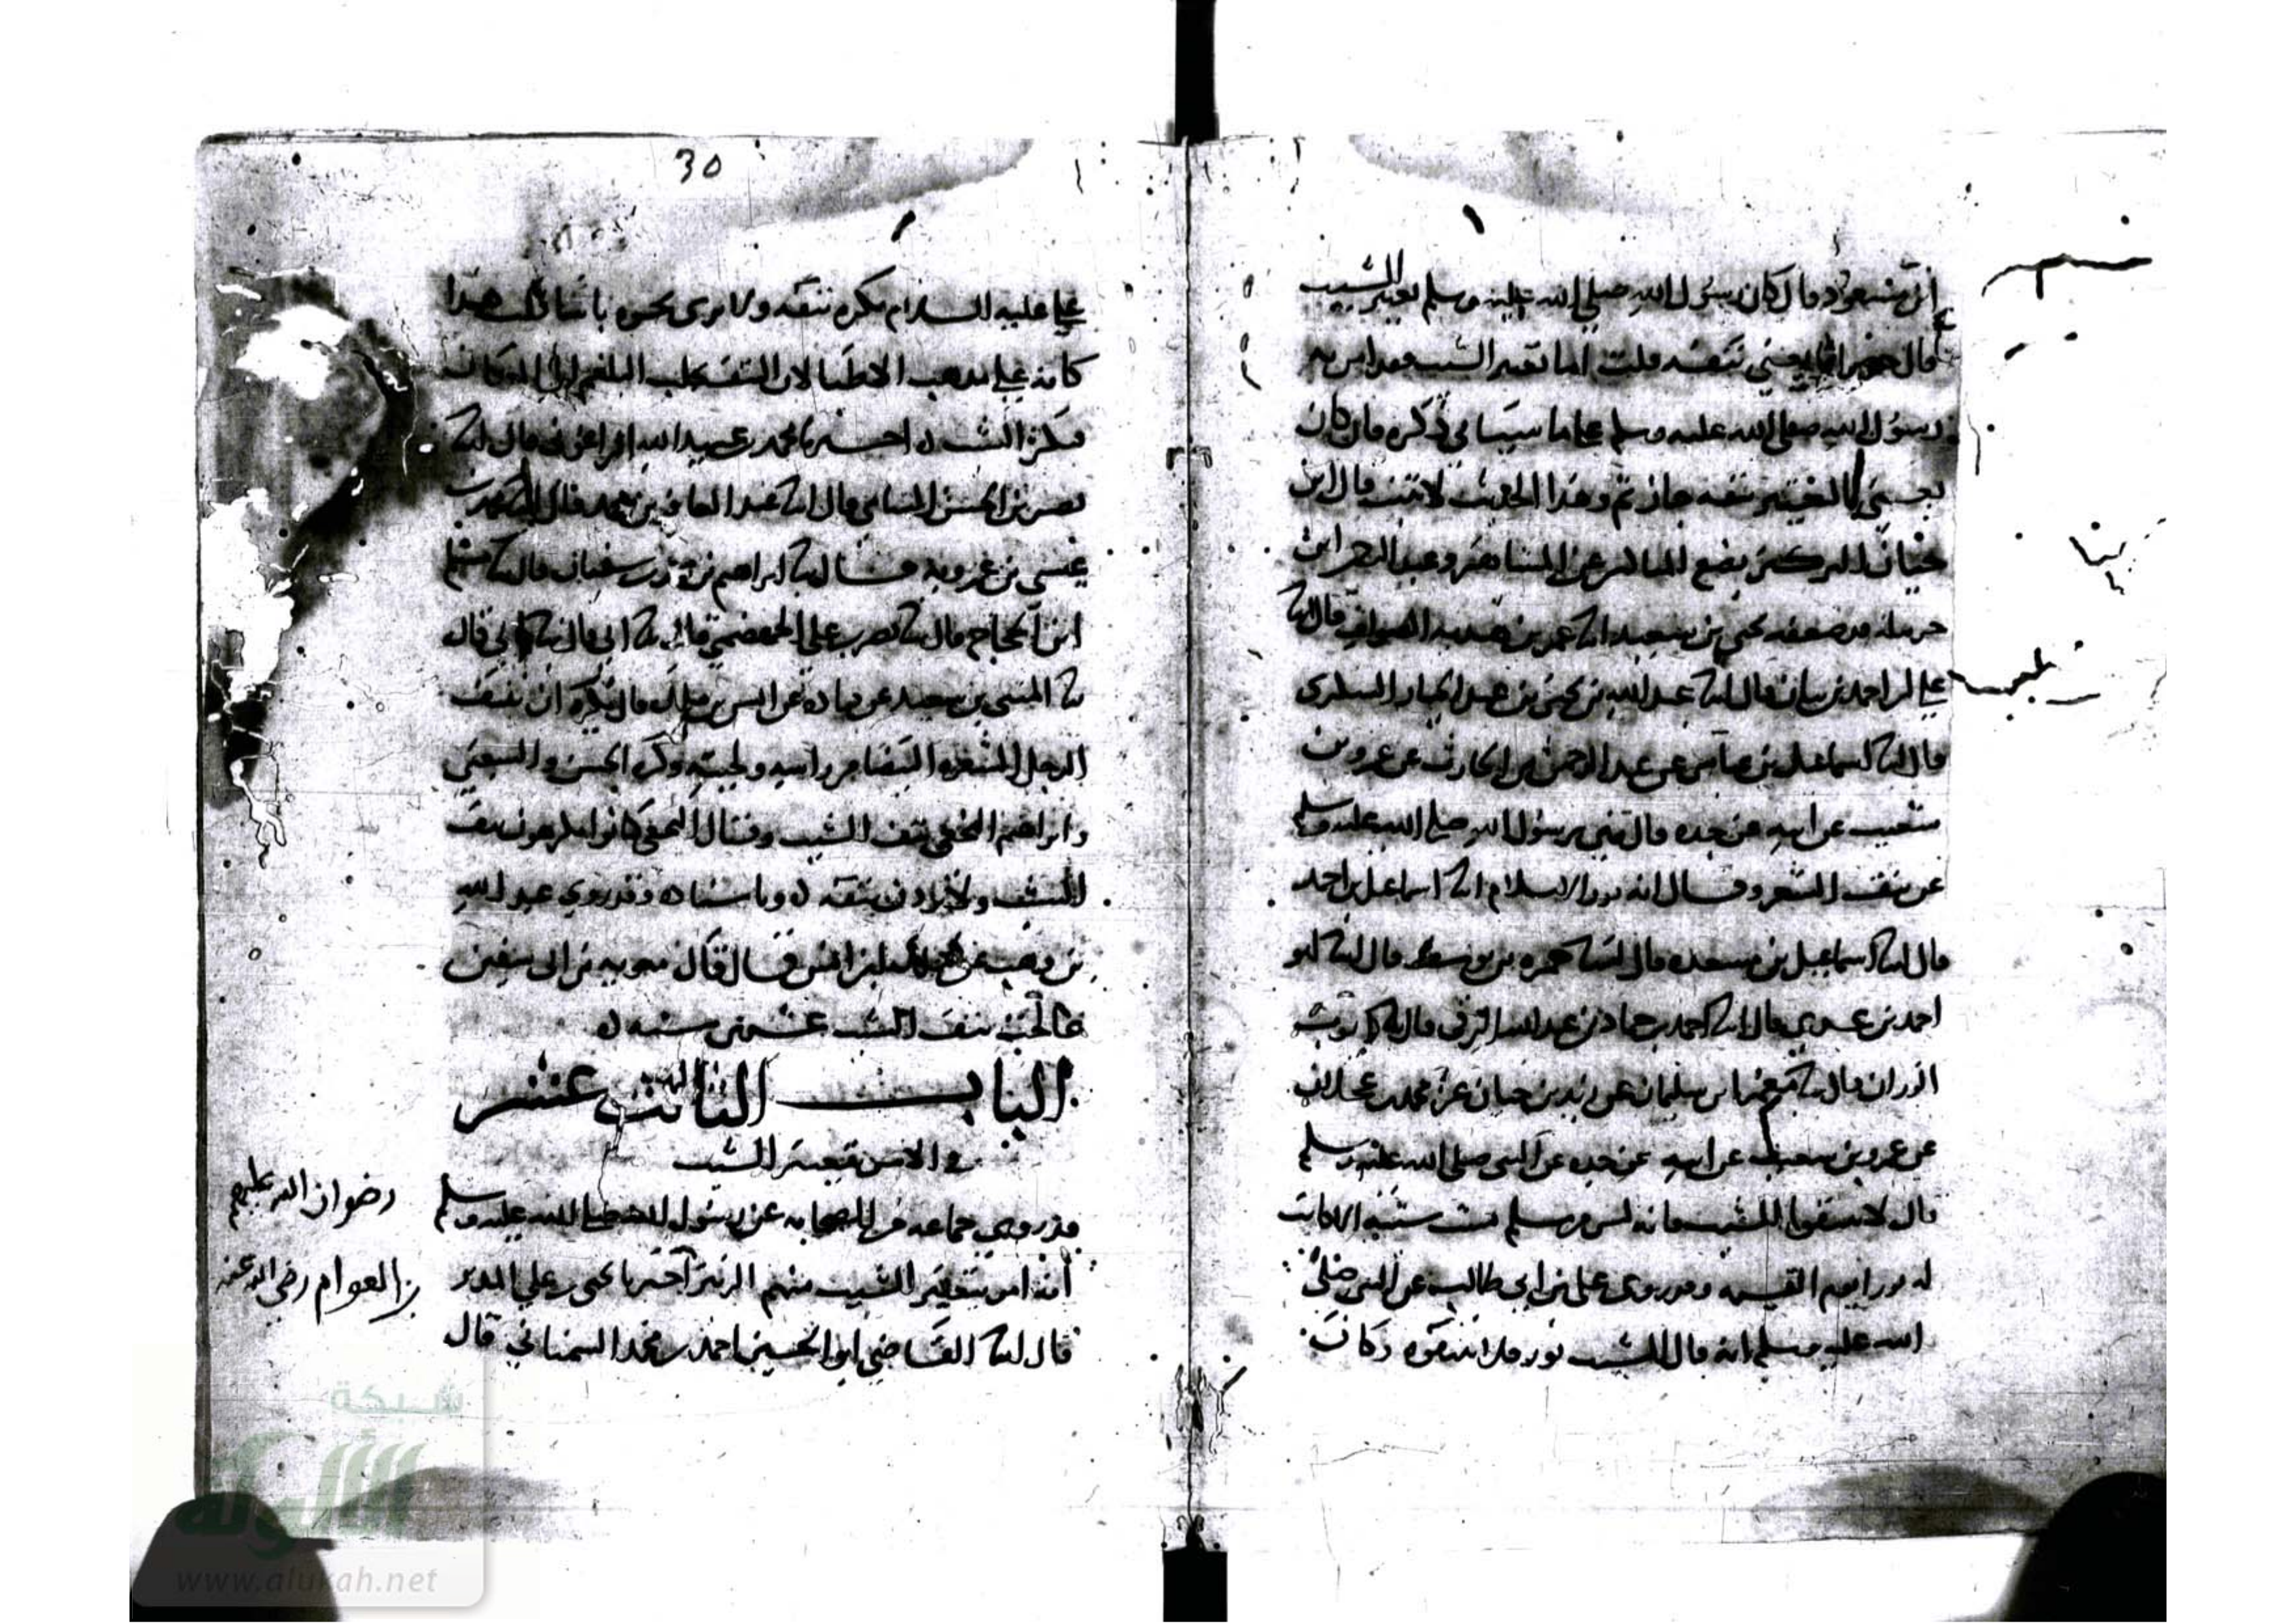 ابن مسعود قال كان رسول الله صلى الله عليه وسلم تغيير الشيب
قال جرير انما يعني نتفه قلت اما تغيير الشيب فقد امر به
رسول الله صلى الله عليه وسلم على ما سياتي ذكره قال كان
يعني بالتغيير نتفه جاز ثم هذا الحديث لا يثبت قال ابن
حبان الركين يضع المناكير عن المشاهير وعبد الرحمن ابن
حرملة قد ضعفه يحيى بن سعيد انا عمر بن هدية الصواف قال انا
علي بن احمد بن بيان قال انا عبد الله بن يحيى بن عبد الجبار السكري
قال انا اسماعيل بن عياش عن عبد الرحمن بن الحارث عن عمرو بن
شعيب عن ابيه عن جده قال نهى رسول الله صلى الله عليه وسلم
عن نتف الشعر وقال انه نور الاسلام انا اسماعيل بن احمد
قال انا اسماعيل بن مسعده قال انا حمزه بن يوسف قال انا ابو
احمد بن عدي قال انا احمد بن حماد بن عبد الله الرقي قال
الوزان قال معمر بن سليمان عن زيد بن حبان عن محمد بن عجلان
عن عمرو بن شعيب عن ابيه عن جده عن النبي صلى الله عليه وسلم
قال لا تنتفوا الشيب فانه ليس من مسلم يشيب شيبه الا كانت
له نورا يوم القيمه وقد روى علي بن ابي طالب عن النبي صلى
الله عليه وسلم انه قال الشيب نور فلا تنتفوه وكان
30
علي عليه السلام يكره نتفه ولا يرى بجزه باسا قلت هذا
كانه على مذهب الاطبا لان النتف يجلب البلغم الى المكان
فيكثر الشيب اخبرنا محمد بن عبيد الله الزاغوني قال انا
نصر بن الحسن الشاشي قال انا عبد الغافر بن محمد قال انا محمد بن
عيسى بن عمرويه قال انا ابراهيم بن محمد بن سفيان قال انا مسلم
ابن الحجاج قال نا نصر بن علي الجهضمي قال نا ابي قال
نا المثنى بن سعيد عن قتاده عن انس بن مالك قال يكره ان ينتف
الرجل الشعره البيضا من راسه ولحيته وكره الحسن والشعبي
وابراهيم النخعي نتف الشيب وقال النخعي كانوا يكرهون نتف
الشيب ولا يرون بنتفه باسا وقد روى عبد الله
بن وهب عن مالك بن انس قال قال معويه بن ابي سفين
خالجت نتف الشيب عشرين سنه
الباب الثالث عشر
في الامر بتغيير الشيب
قد روى جماعه من الصحابه عن رسول الله صلى الله عليه وسلم
رضوان الله عليهم
انه امر بتغيير الشيب منهم الزبير اخبرنا يحيى بن علي المدير
بن العوام رضي الله عنه
قال انا القاضي ابو الحسين احمد بن محمد السمناني قال
شبكة
الألوكة
www.alukah.net